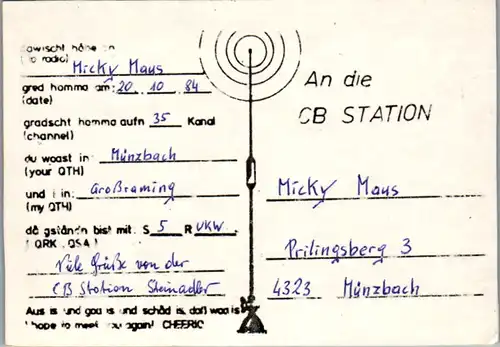 dawischt höhe
( to radio)
Micky Maus
gred homma am: 20. 10. 84
(date)
gradscht homma aufn 35 Kanal
(channel)
du woast in: Münzbach
(your QTH)
und i in: Großraming
(my QTH)
då gståndn bist mit: S 5 R UKW.
( QRK , QSA )
Viele Grüße von der
CB Station Steinadler
Aus is und goa is und schåd is, daß woa is
I hope to meet you again! CHEERIO
An die
CB STATION
Micky Maus
Prilingsberg 3
4323 Münzbach